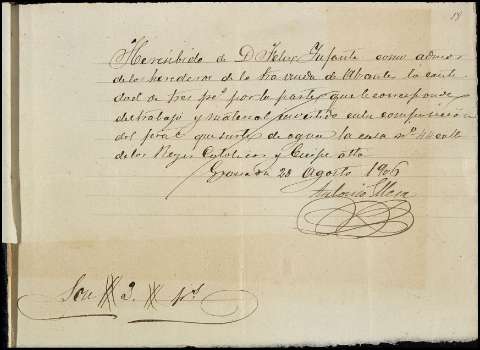 18
He recibido de D. Felix Ynfante como admor
de los herederos de la Sra viuda de Abrantes la canti-
dad de tres pts por la parte que le corresponde
de trabajo y material invertido en la composicion
del que surte de agua la casa nº 44 calle
de los Reyes Catolicos y alta
Granada 28 Agosto 1906
Antonio
Son # 3 # pts